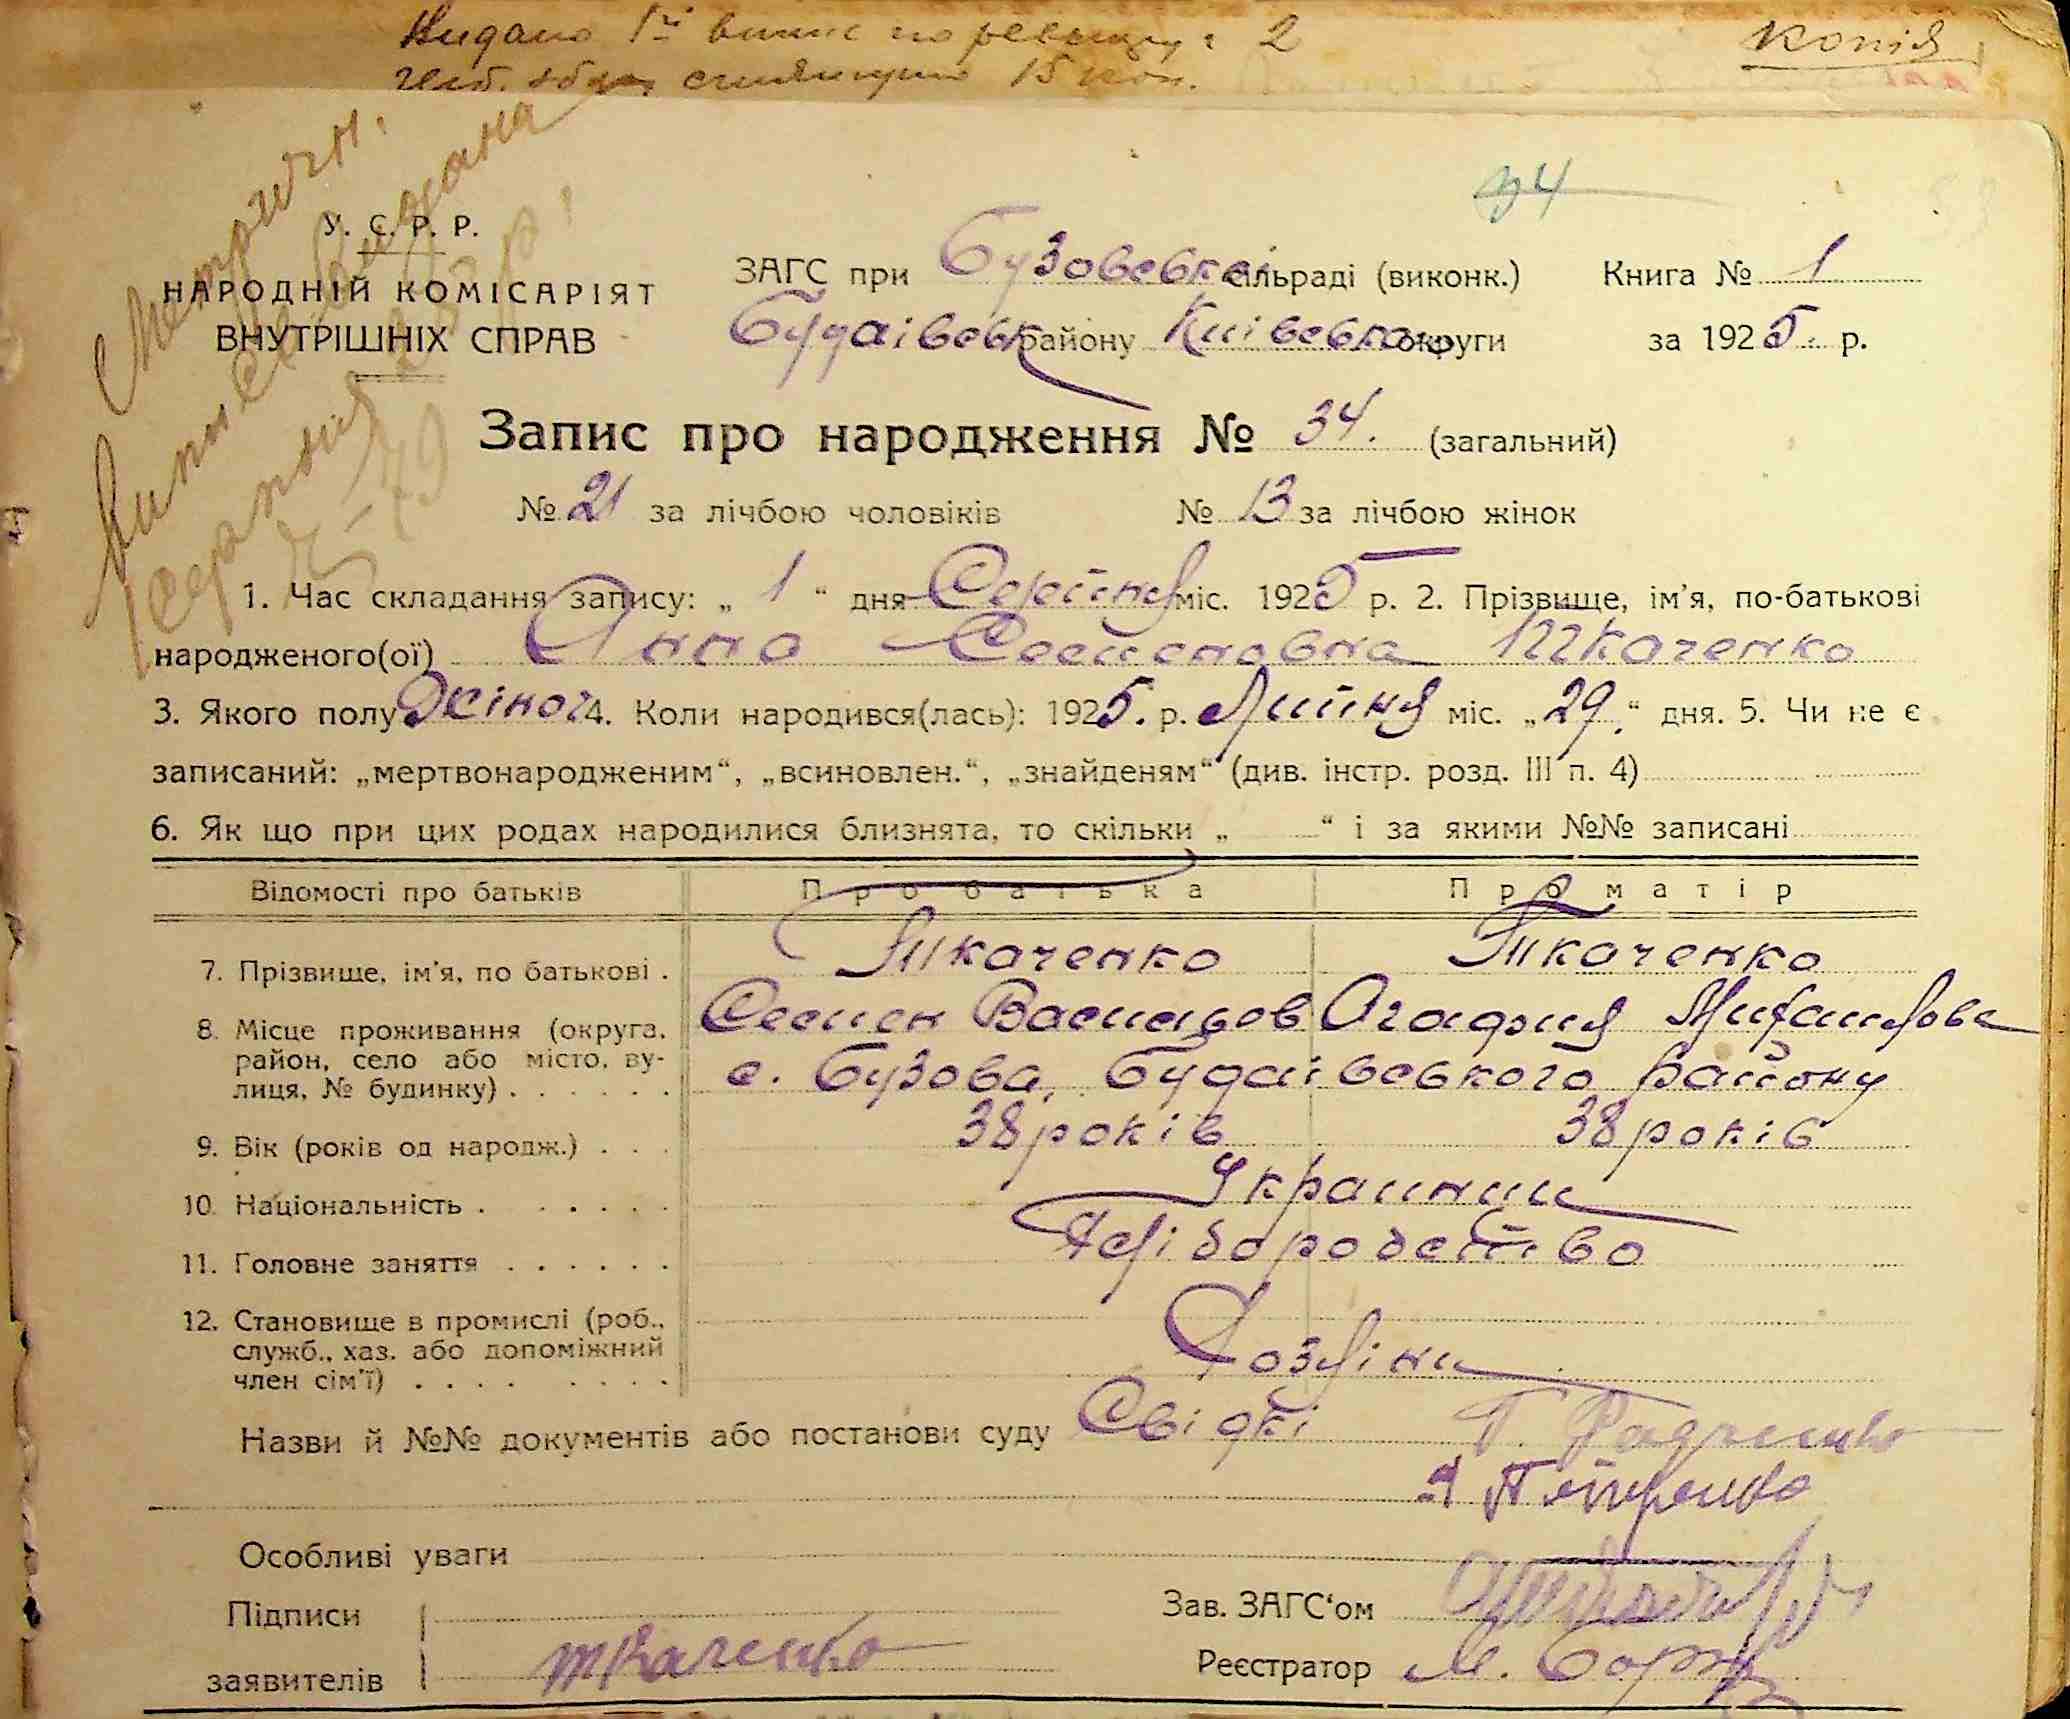 Видано 1й випис по реєстру № 2
герб. збор. стягнуто 15 коп.
копія
Метричн.
випись видана
34
У. С. Р. Р.
НАРОДНІЙ КОМІСАРІЯТ
ВНУТРІШНІХ СПРАВ
ЗАГС при Бузовській сільраді (виконк.) Книга № 1
Будаівськ району Киівської округи за 1925. р.
Запис про народження № 34. (загальний)
№ 21 за лічбою чоловіків № 13 за лічбою жінок
1. Час складання запису: „ 1 “ дня Серпня міс. 1925 р. 2. Прізвище, ім'я, по-батькові
народженого(ої) Анна Семеновна Ткаченко
3. Якого полу Жіноч 4. Коли народився(лась): 1925. р. Липня міс. „29.“ дня. 5. Чи не є
записаний: „мертвонародженим“, „всиновлен.“, „знайденям“ (див. інстр. розд. III п. 4)
6. Як що при цих родах народилися близнята, то скільки „ “ і за якими №№ записані
Відомості про батьків Про батька Про матір
7. Прізвище, ім'я, по батькові . Ткаченко Ткаченко
Семен Васильов Агафия Михаилова
8. Місце проживання (округа, район, село або місто, вулиця, № будинку) . . . . . . с. Бузова, Будаівського Району
9. Вік (років од народж.) . . . 38 років 38 років
10. Національність . . . . . . Украинци
11. Головне заняття . . . . . . Хліборобство
12. Становище в промислі (роб., служб., хаз. або допоміжний член сім'ї) . . . . . . . . Хозяіни
Назви й №№ документів або постанови суду Свідкі Г. Радченко
Я Петренко
Особливі уваги
Підписи
Зав. ЗАГС'ом
заявителів Ткаченко
Реєстратор М.